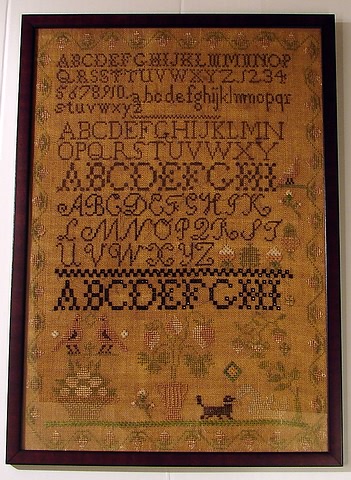 ABCDEFGHIJKLMNOP
QRSTUVWXYZ 1234
5678910. abcdefghijklmnopqr
stuvwxyz
ABCDEFGHIJKLMN
OPQRSTUVWXY
ABCDEFGHI
ABCDEFGHIK
LMNOPQRST
UVWXYZ
ABCDEFGHI